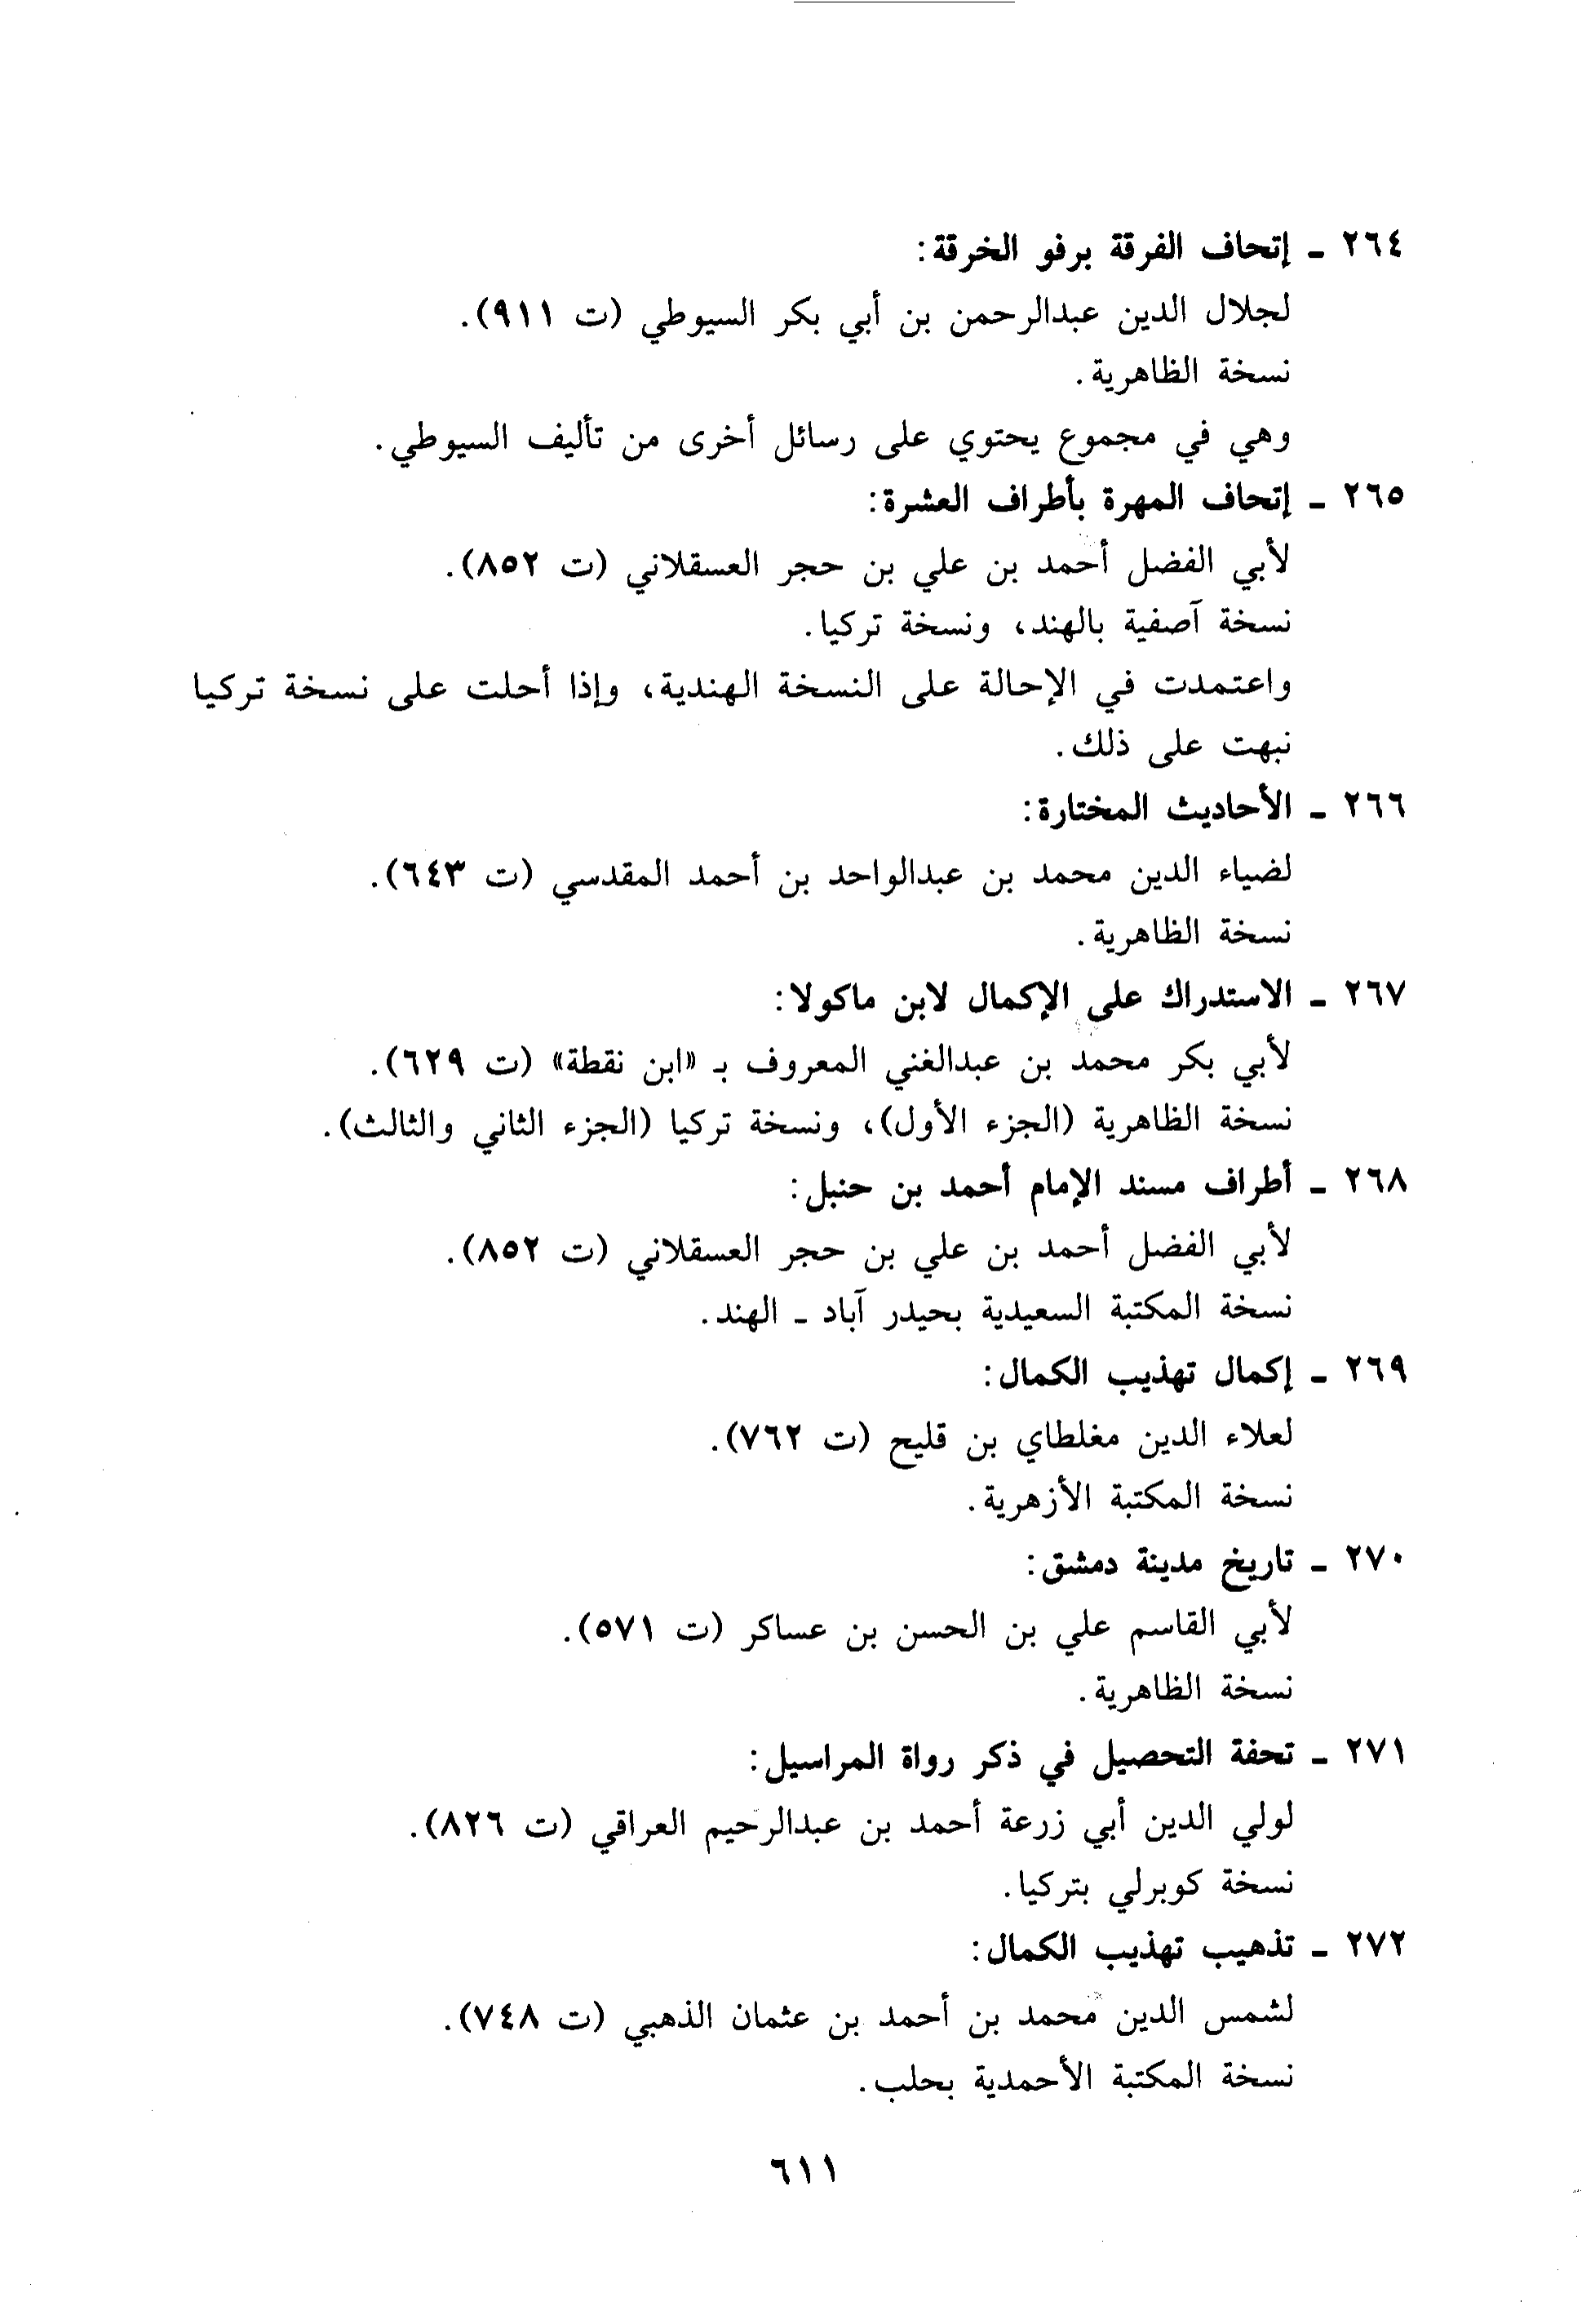 ٢٦٤ ـ إتحاف الفرقة برفو الخرقة:
لجلال الدين عبدالرحمن بن أبي بكر السيوطي (ت ٩١١).
نسخة الظاهرية.
وهي في مجموع يحتوي على رسائل أخرى من تأليف السيوطي.
٢٦٥ ـ إتحاف المهرة بأطراف العشرة:
لأبي الفضل أحمد بن علي بن حجر العسقلاني (ت ٨٥٢).
نسخة آصفية بالهند، ونسخة تركيا.
واعتمدت في الإحالة على النسخة الهندية، وإذا أحلت على نسخة تركيا
نبهت على ذلك.
٢٦٦ ـ الأحاديث المختارة:
لضياء الدين محمد بن عبدالواحد بن أحمد المقدسي (ت ٦٤٣).
نسخة الظاهرية.
٢٦٧ ـ الاستدراك على الإكمال لابن ماكولا:
لأبي بكر محمد بن عبدالغني المعروف بـ «ابن نقطة» (ت ٦٢٩).
نسخة الظاهرية (الجزء الأول)، ونسخة تركيا (الجزء الثاني والثالث).
٢٦٨ ـ أطراف مسند الإمام أحمد بن حنبل:
لأبي الفضل أحمد بن علي بن حجر العسقلاني (ت ٨٥٢).
نسخة المكتبة السعيدية بحيدر آباد ـ الهند.
٢٦٩ ـ إكمال تهذيب الكمال:
لعلاء الدين مغلطاي بن قليح (ت ٧٦٢).
نسخة المكتبة الأزهرية.
٢٧٠ ـ تاريخ مدينة دمشق:
لأبي القاسم علي بن الحسن بن عساكر (ت ٥٧١).
نسخة الظاهرية.
٢٧١ ـ تحفة التحصيل في ذكر رواة المراسيل:
لولي الدين أبي زرعة أحمد بن عبدالرحيم العراقي (ت ٨٢٦).
نسخة كوبرلي بتركيا.
٢٧٢ ـ تذهيب تهذيب الكمال:
لشمس الدين محمد بن أحمد بن عثمان الذهبي (ت ٧٤٨).
نسخة المكتبة الأحمدية بحلب.
٦١١